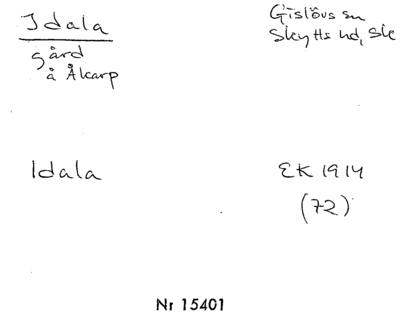 Idala
gård
å Åkarp
Gislövs sn
Skytts hd, Sk
Idala
EK 1914
(72)
Nr 15401